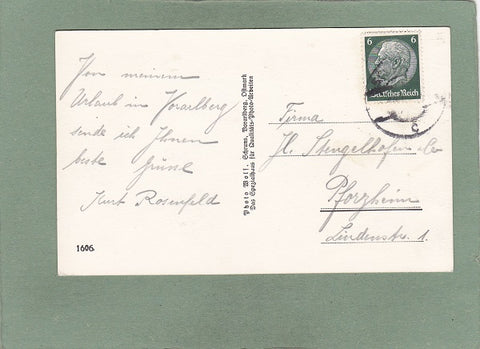 Von meinem
Urlaub in Vorarlberg
sende ich Ihnen
beste Grüsse
Kurt Rosenfeld
1606.
Photo Wolf, Schruns, Vorarlberg, Ostmark
Das Spezialhaus für Qualitäts-Photo-Arbeiten
6 6
Deutsches Reich
c
Firma
Stengelhofen & Co
Pforzheim
Lindenstr. 1.